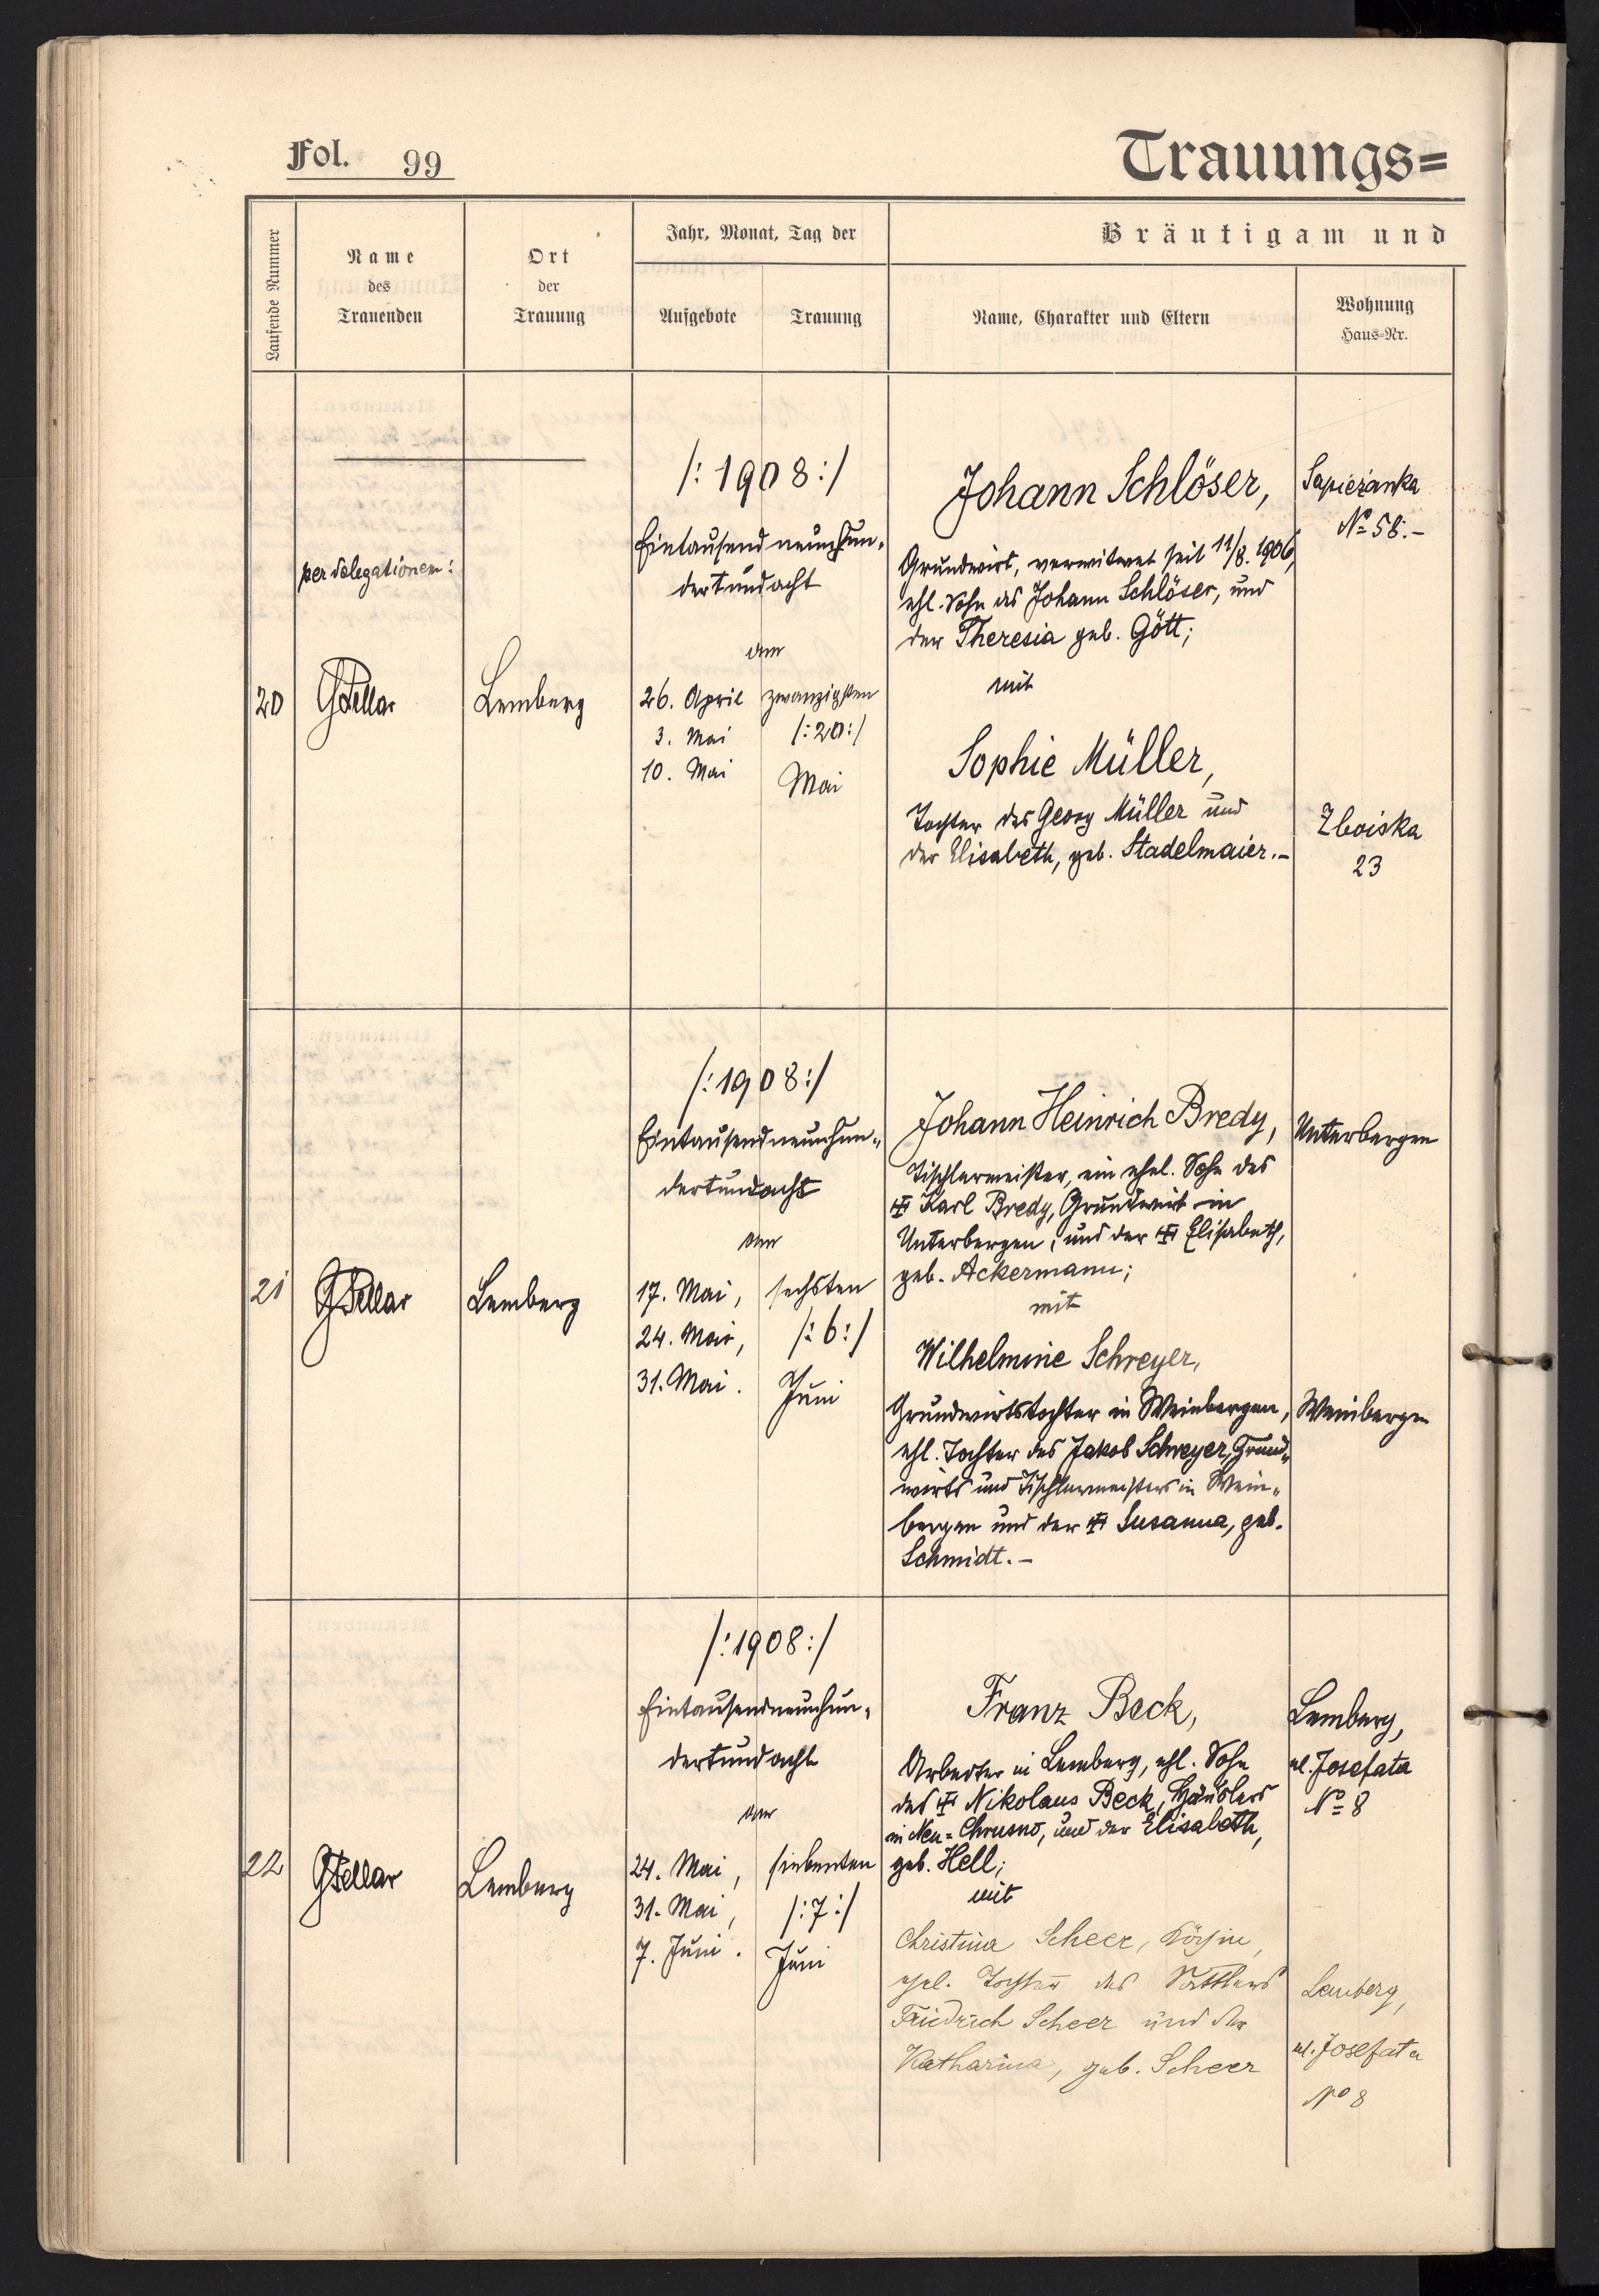 Fol. 99
Trauungs=
Laufende Nummer
Name
des
Trauenden
Ort
der
Trauung
Jahr, Monat, Tag der
Aufgebote
Trauung
Bräutigam und
Name, Charakter und Eltern
Wohnung
Haus=Nr.
per delegationem:
20
Lemberg
/: 1908 :/
Eintausend neunhun-
dertundacht
am
26. April
3. Mai
10. Mai
zwanzigsten
/: 20 :/
Mai
Johann Schlöser,
Grundwirt, verwitwet seit 11/8. 1906,
ehl. Sohn des Johann Schlöser, und
der Theresia geb. Gött;
mit
Sophie Müller,
Tochter des Georg Müller und
der Elisabeth, geb. Stadelmaier.-
Sapieżanka
No 58.-
Zboiska
23
21
Lemberg
/: 1908 :/
Eintausendneunhun-
dertundacht
am
17. Mai,
24. Mai,
31. Mai.
sechsten
/: 6 :/
Juni
Johann Heinrich Bredy,
Tischlermeister, ein ehel. Sohn des
Karl Bredy, Grundwirt in
Unterbergen, und der Elisabeth,
geb. Ackermann;
mit
Wilhelmine Schreyer,
Grundwirtstochter in Weinbergen,
ehl. Tochter des Jakob Schreyer, Grund-
wirts und Tischlermeisters in Wein-
bergen und der Susanna, geb.
Schmidt.-
Unterbergen
Weinbergen
22
Lemberg
/: 1908 :/
Eintausendneunhun-
dertundacht
am
24. Mai,
31. Mai,
7. Juni.
siebenten
/: 7 :/
Juni
Franz Beck,
Arbeiter in Lemberg, ehl. Sohn
des Nikolaus Beck, Häuslers
in Neu=Chrusno, und der Elisabeth,
geb. Hell;
mit
Christina Scheer, Köchin,
ehel. Tochter des Sattlers
Friedrich Scheer und der
Katharina, geb. Scheer
Lemberg,
ul. Josefata
No 8
Lemberg,
ul. Josefata
No 8